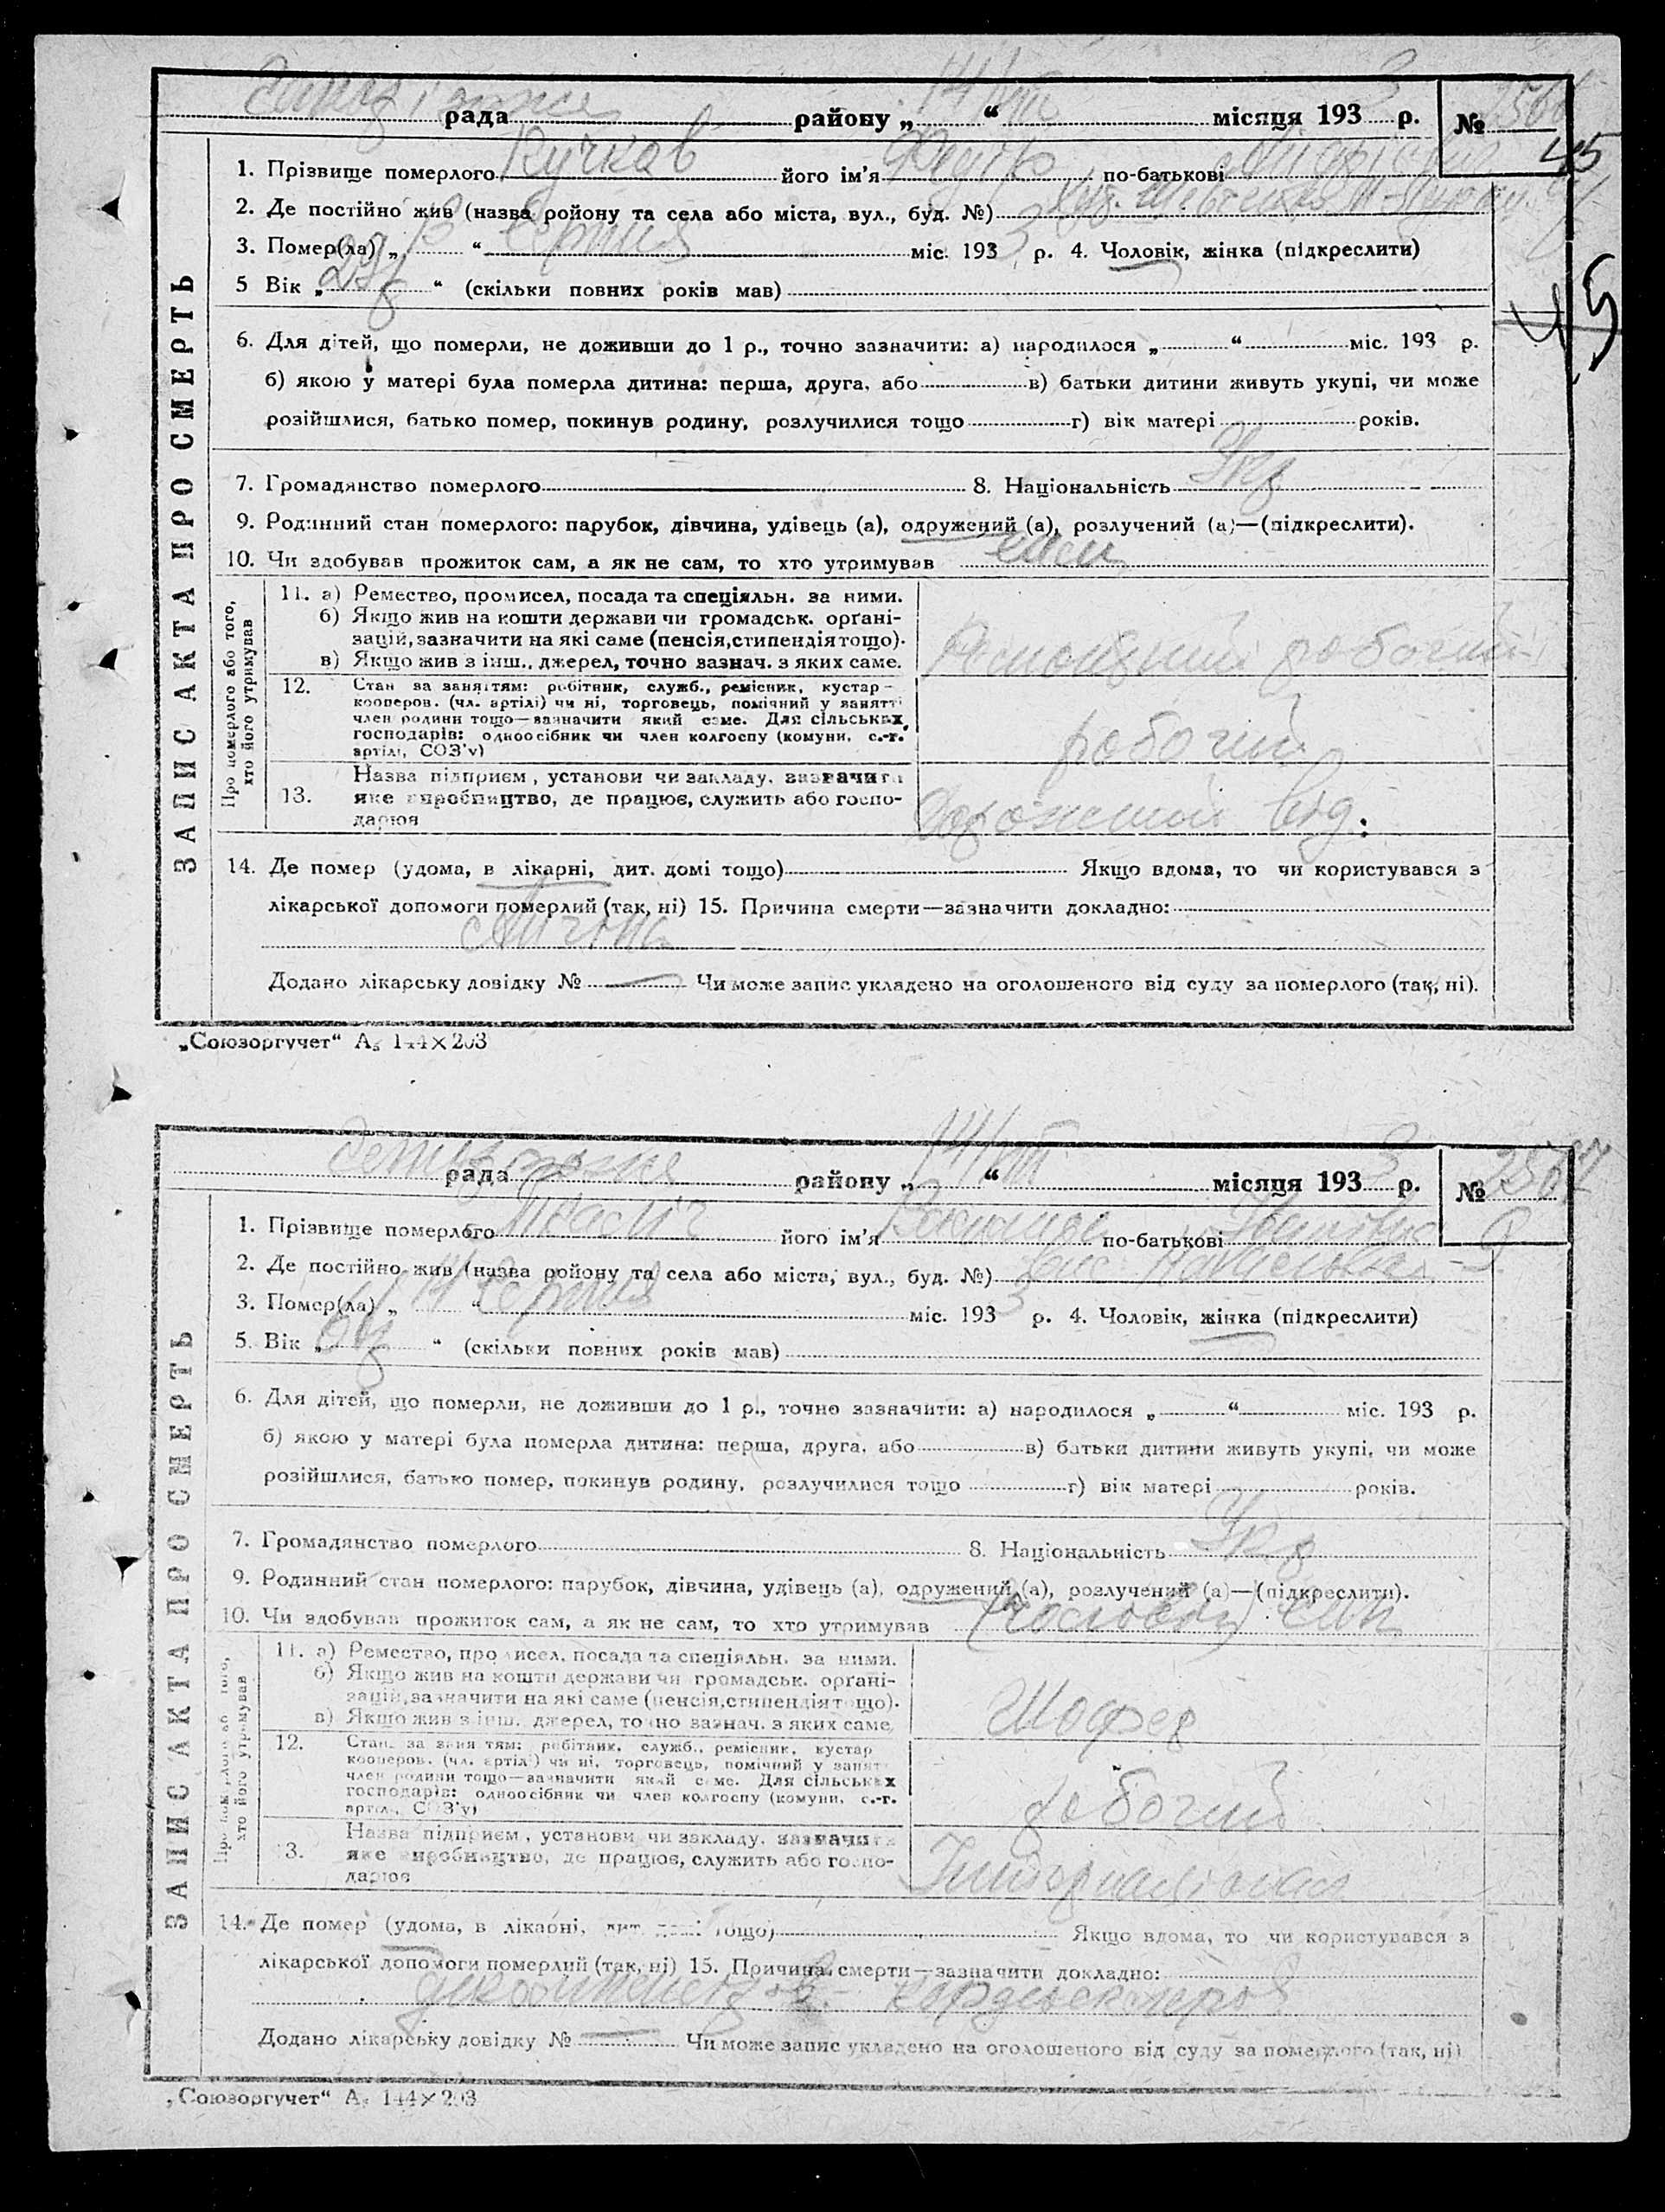 рада району „ 14/VIII “ місяця 193 3 р. №
45
1. Прізвище померлого Кучков його ім'я Федір по-батькові
2. Де постійно жив (назва ройону та села або міста, вул., буд. №)
3. Помер(ла) „ 13 “ Серпня міс. 193 3 р. 4. Чоловік, жінка (підкреслити)
5 Вік „ 29 р “ (скільки повних років мав)
45
6. Для дітей, що померли, не доживши до 1 р., точно зазначити: а) народилося „ “ міс. 193 р.
б) якою у матері була померла дитина: перша, друга, або в) батьки дитини живуть укупі, чи може
розійшлися, батько помер, покинув родину, розлучилися тощо г) вік матері років.
7. Громадянство померлого 8. Національність Укр
9. Родинний стан померлого: парубок, дівчина, удівець (а), одружений (а), розлучений (а)—(підкреслити).
10. Чи здобував прожиток сам, а як не сам, то хто утримував сам
ЗАПИС АКТА ПРО СМЕРТЬ
Про померлого або того, хто його утримував
11. а) Ремество, промисел, посада та спеціяльн. за ними.
б) Якщо жив на кошти держави чи громадськ. орґані-
зацій, зазначити на які саме (пенсія, стипендія тощо).
в) Якщо жив з інш., джерел, точно зазнач. з яких саме.
робочий
12. Стан за заняттям: робітник, служб., ремісник, кустар –
кооперов. (чл. артілі) чи ні, торговець, помічний у занятті
член родини тощо—зазначити який саме. Для сільських
господарів: одноосібник чи член колгоспу (комуни, с.-г.
артілі, СОЗ'у)
робочий
13. Назва підприєм, установи чи закладу, зазначити
яке виробництво, де працює, служить або госпо-
дарює
Дорожний від.
14. Де помер (удома, в лікарні, дит. домі тощо) Якщо вдома, то чи користувався з
лікарської допомоги померлий (так, ні) 15. Причина смерти—зазначити докладно:
Додано лікарську довідку № — Чи може запис укладено на оголошеного від суду за померлого (так, ні).
„Союзоргучет“ А₅ 144×203
рада району „ 14/VIII “ місяця 193 3 р. №
1. Прізвище померлого його ім'я по-батькові
2. Де постійно жив (назва ройону та села або міста, вул., буд. №)
3. Помер(ла) „ “ Серпня міс. 193 3 р. 4. Чоловік, жінка (підкреслити)
5. Вік „ “ (скільки повних років мав)
6. Для дітей, що померли, не доживши до 1 р., точно зазначити: а) народилося „ “ міс. 193 р.
б) якою у матері була померла дитина: перша, друга, або в) батьки дитини живуть укупі, чи може
розійшлися, батько помер, покинув родину, розлучилися тощо г) вік матері років.
7. Громадянство померлого 8. Національність Укр
9. Родинний стан померлого: парубок, дівчина, удівець (а), одружений (а), розлучений (а)—(підкреслити).
10. Чи здобував прожиток сам, а як не сам, то хто утримував
ЗАПИС АКТА ПРО СМЕРТЬ
11. а) Ремество, промисел, посада та спеціяльн. за ними.
б) Якщо жив на кошти держави чи громадськ. орґані-
зацій, зазначити на які саме (пенсія, стипендія тощо).
в) Якщо жив з інш., джерел, точно зазнач. з яких саме.
Шофер
12. Стан за заняттям: робітник, служб., ремісник, кустар
кооперов. (чл. артілі) чи ні, торговець, помічний у занятт
член родини тощо—зазначити який саме. Для сільських
господарів: одноосібник чи член колгоспу (комуни, с.-г.
артілі, СОЗ'у)
робочий
13. Назва підприєм, установи чи закладу, зазначити
яке виробництво, де працює, служить або госпо-
дарює
Інтернаціонал
14. Де помер (удома, в лікарні, дит. домі тощо) Якщо вдома, то чи користувався з
лікарської допомоги померлий (так, ні) 15. Причина смерти—зазначити докладно:
Додано лікарську довідку № — Чи може запис укладено на оголошеного від суду за померлого (так, ні)
„Союзоргучет“ А₅ 144×203